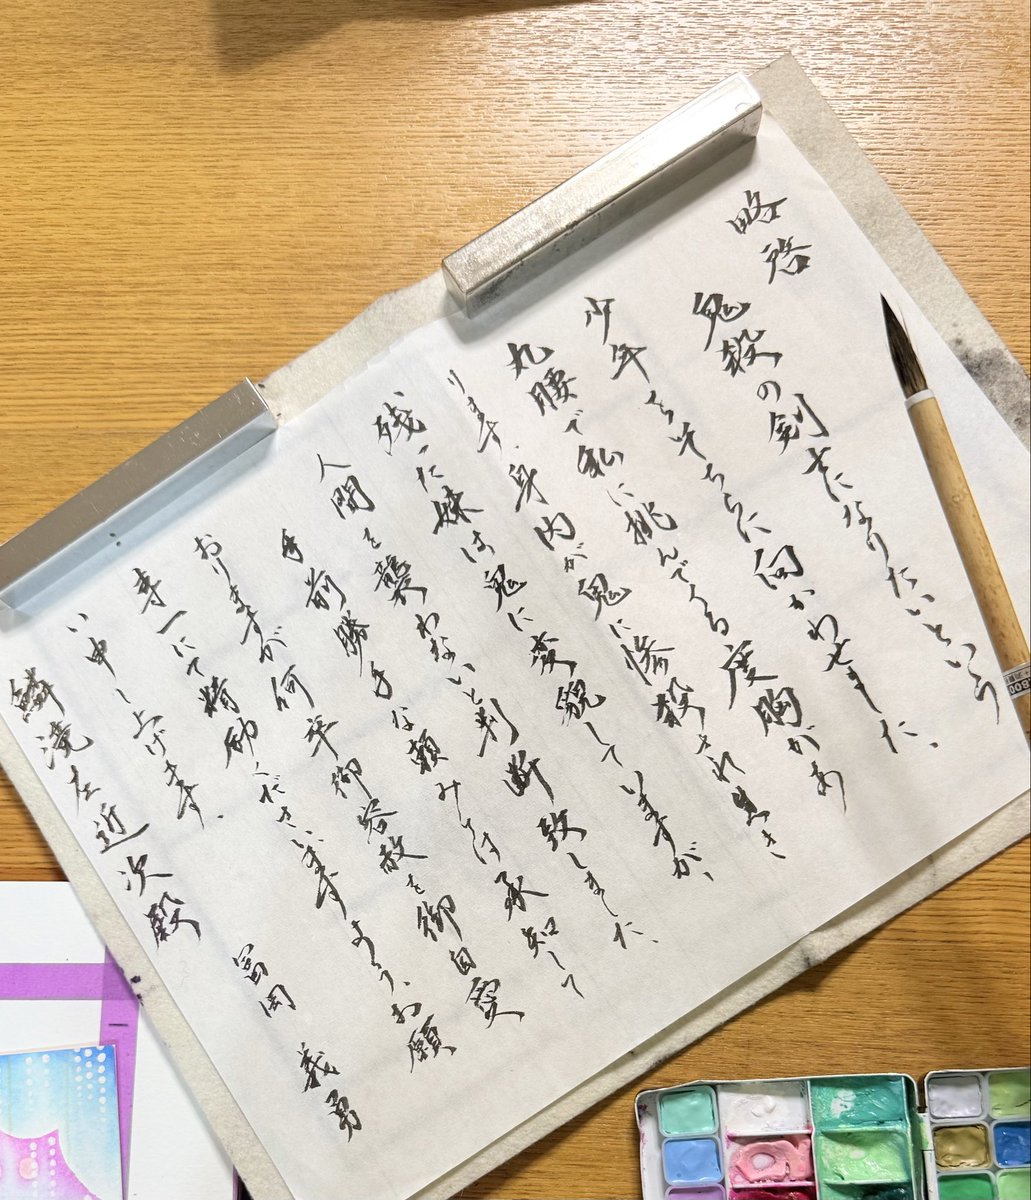 略啓
鬼殺の剣士になりたいという
少年をそちらに向かわせました、
丸腰で私に挑んでくる度胸があ
ります、身内が鬼に惨殺され生き
残った妹は鬼に変貌していますが、
人間を襲わないと判断致しました、
手前勝手な頼みとは承知して
おりますが何卒御容赦を御自愛
専一にて精励くださいますよう、お願
い申し上げます、
冨岡 義勇
鱗滝左近次殿